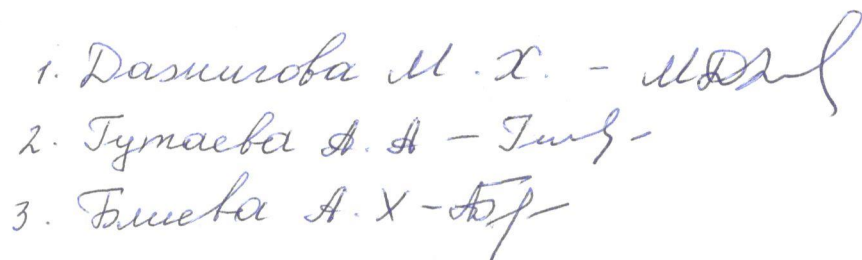 1. Дажигова М. Х. –
2. Гутаева А. А –
3. Блиева А. Х –